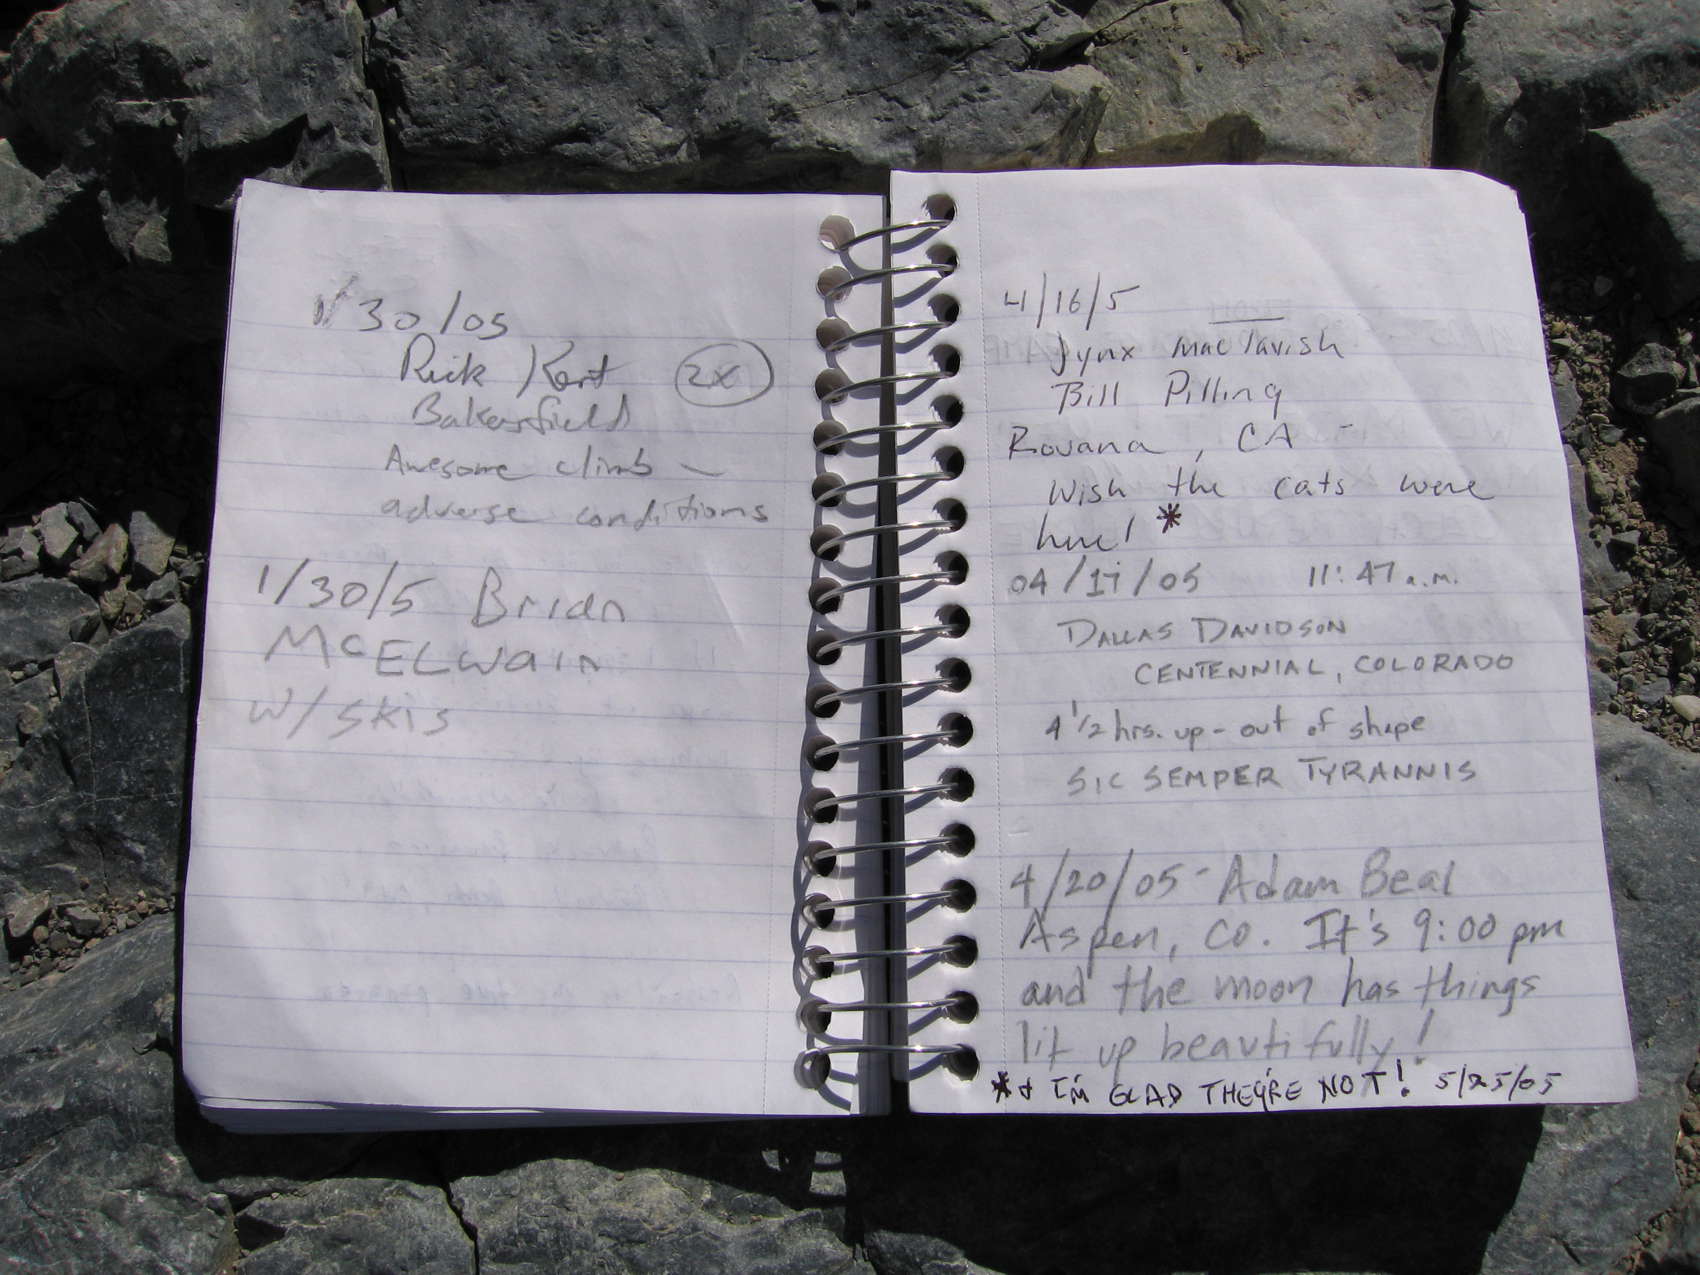 1/30/05
Rick Kent 2x
Bakersfield
Awesome climb –
adverse conditions
1/30/5 Brian
McELwain
w/ skis
4/16/5
Jynx MacTavish
Bill Pilling
Rovana, CA
Wish the cats were
here! *
04/17/05 11:47 a.m.
DALLAS DAVIDSON
CENTENNIAL, COLORADO
4 1/2 hrs. up - out of shape
SIC SEMPER TYRANNIS
4/20/05 - Adam Beal
Aspen, CO. It's 9:00 pm
and the moon has things
lit up beautifully!
* & I'M GLAD THEY'RE NOT! 5/25/05